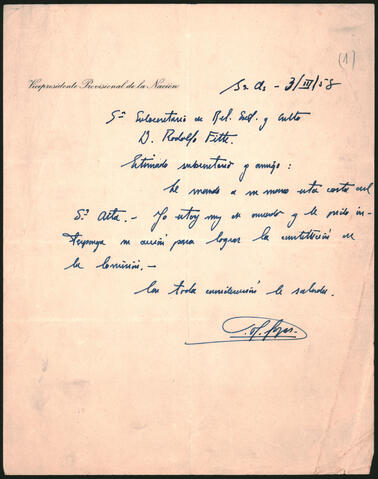 (1)
Vicepresidente Provisional de la Nación
3/III/58
Sr. Subsecretario de Rel. Ext. y Culto
D. Rodolfo
Estimado subsecretario y amigo:
Le mando a mano esta carta del
Sr. . – Yo estoy muy de acuerdo y le pido
su acción para lograr la constitución de
la Comisión. –
Con toda consideración le saluda